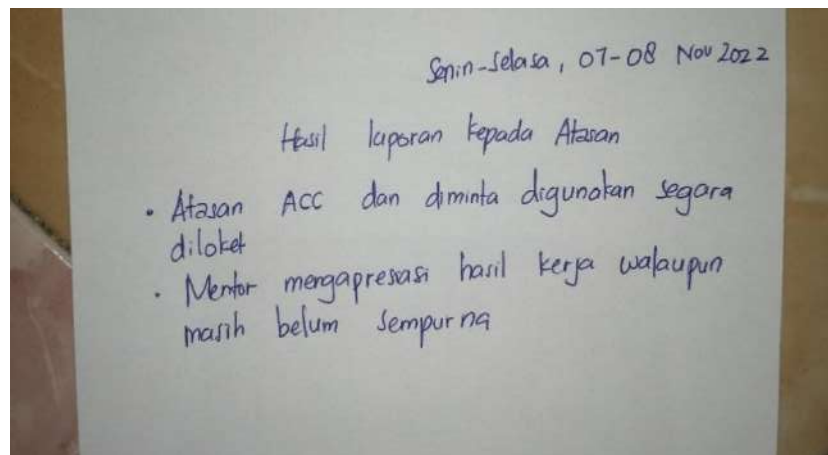 Senin-Selasa, 07-08 Nov 2022
Hasil laporan kepada Atasan
• Atasan ACC dan diminta digunakan segara
diloket
• Mentor mengapresiasi hasil kerja walaupun
masih belum sempurna